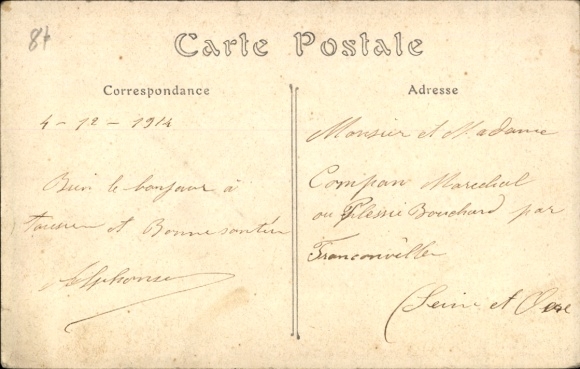 84
Carte Postale
Correspondance
4 - 12 - 1914
Bien le bonjour à
et Bonne santée
Alphonse
Adresse
Monsier et Madame
Compan Marechal
au Plessie Bouchard par
Franconville
(Seine et Oise